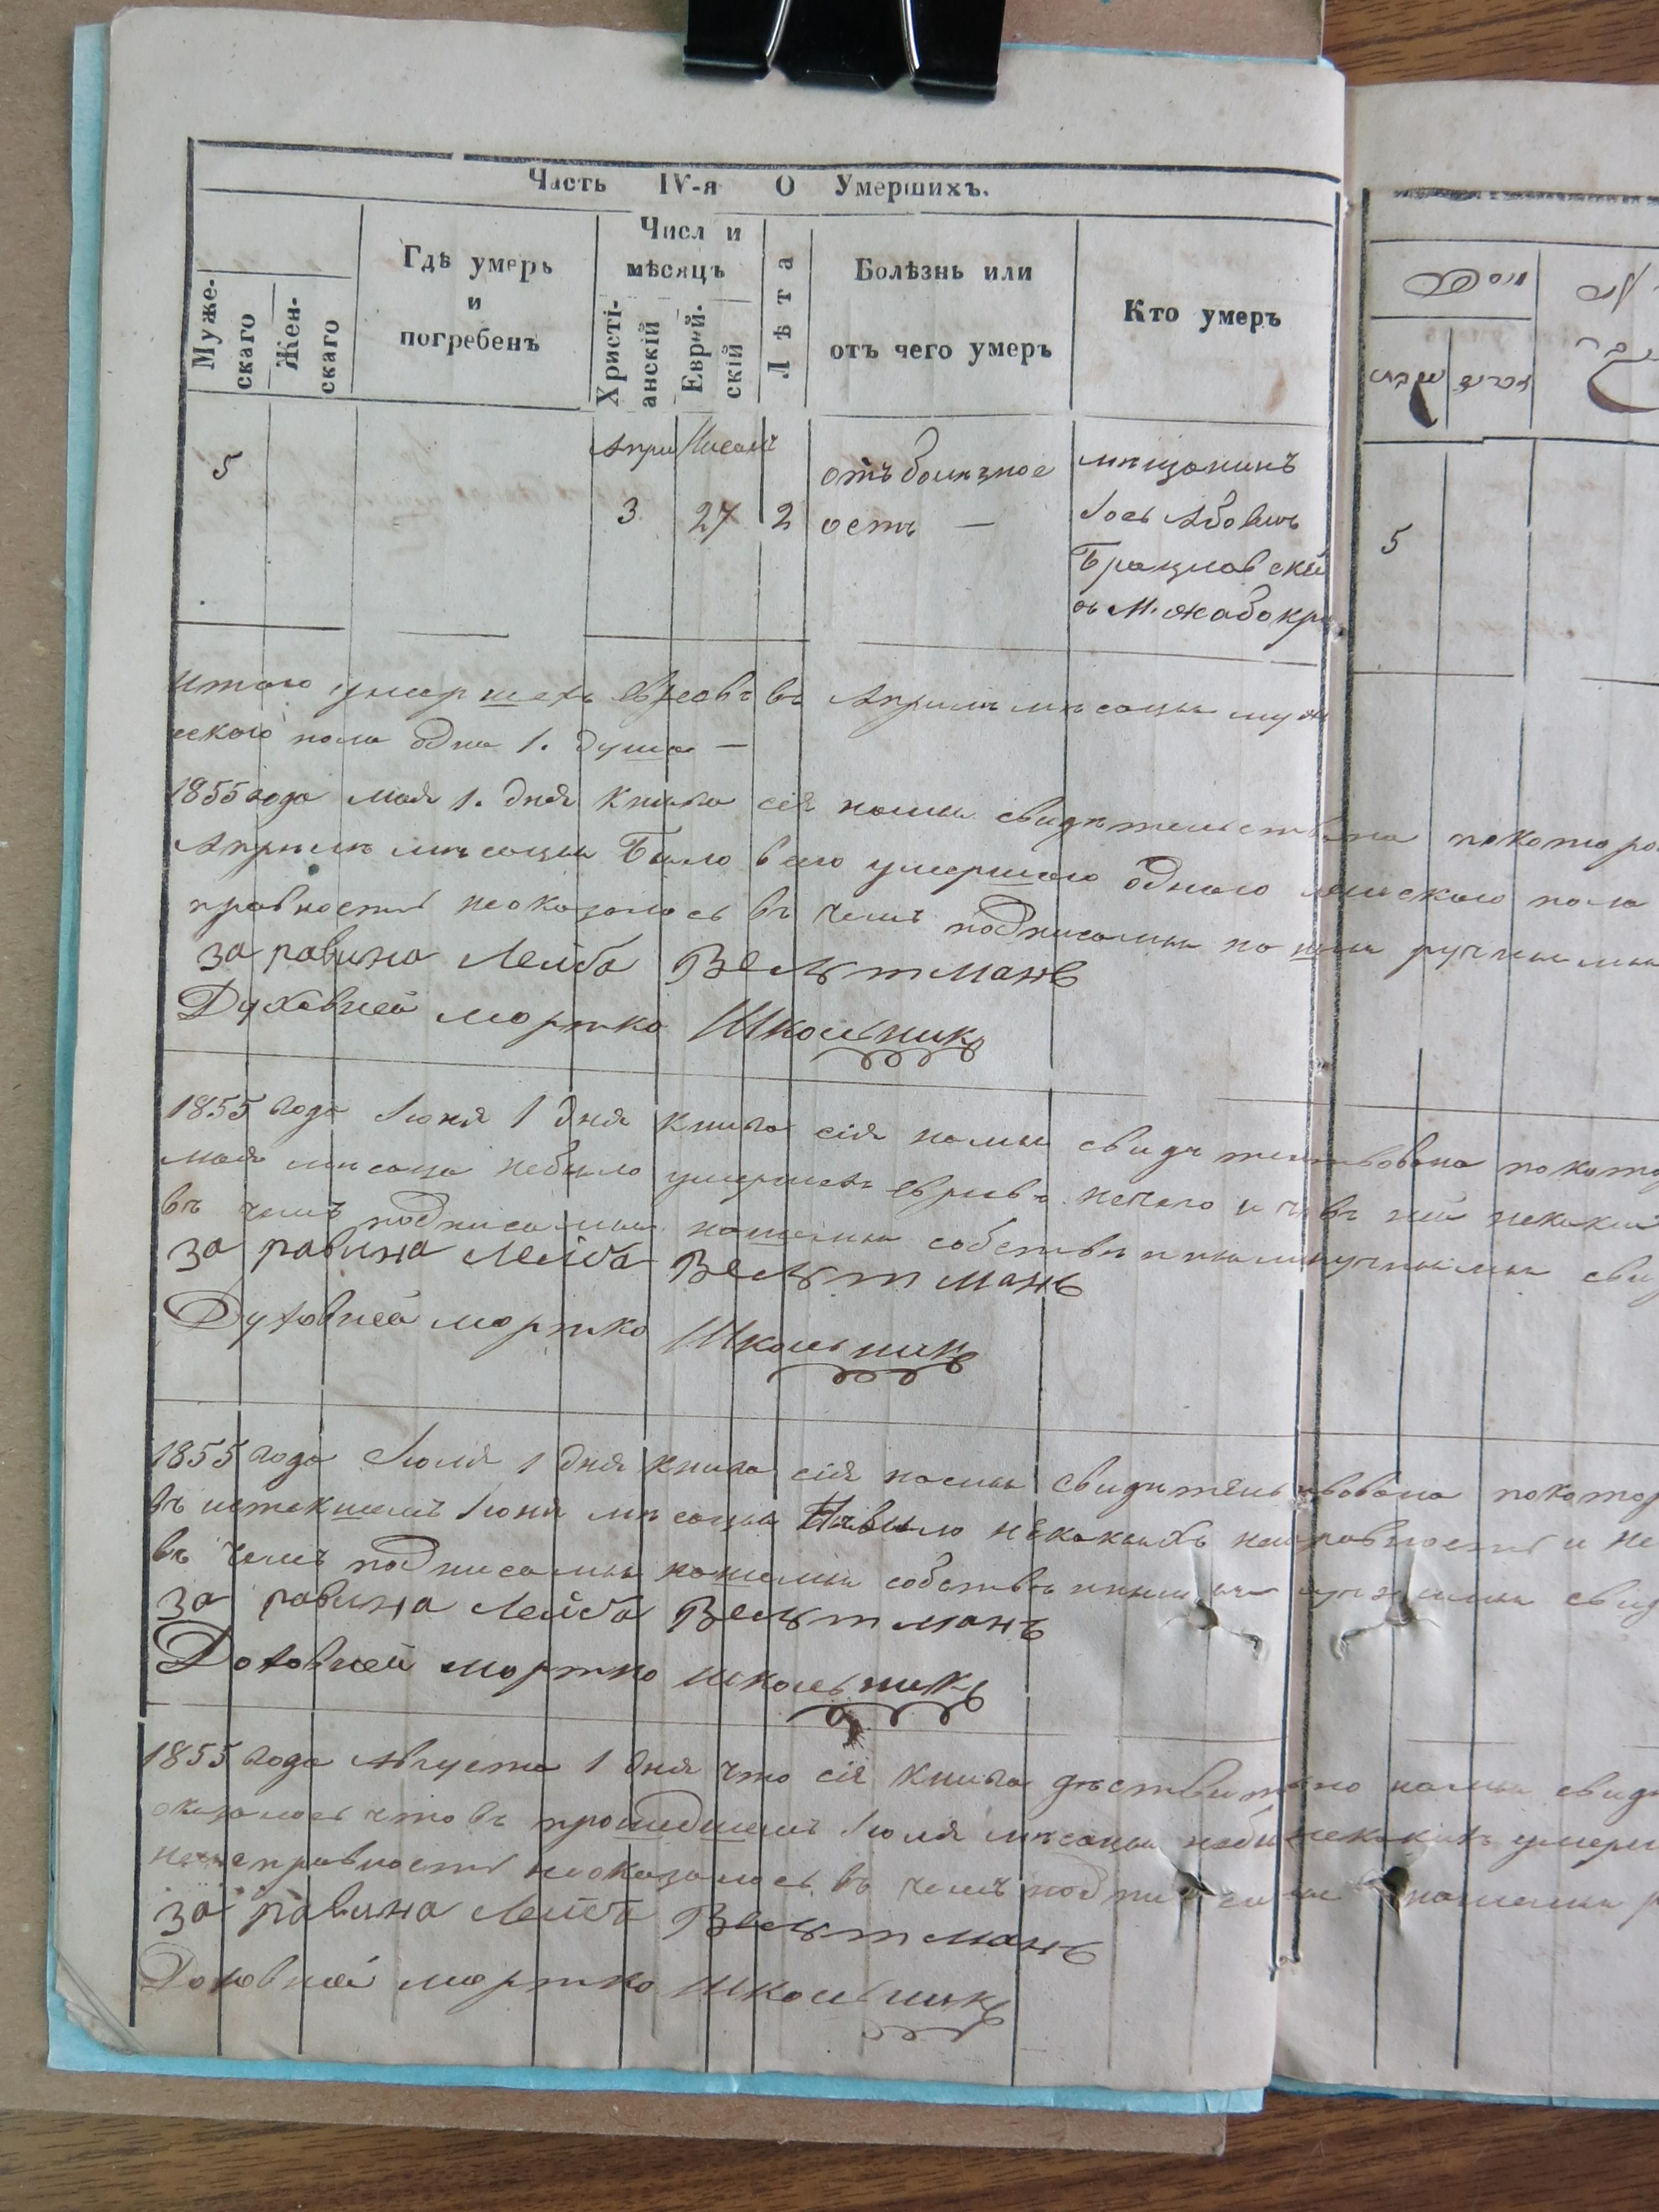 Часть IV-я О Умершихъ.
Муже-
скаго
Жен-
скаго
Гдѣ умеръ
и
погребенъ
Числ и
мѣсяцъ
Христі-
анскій
Еврей-
скій
Лѣта
Болѣзнь или
отъ чего умеръ
Кто умеръ
5
Апри
3
Нисанъ
27
2
отъ
ость —
мѣщанинъ
Іось
Брацлавскій
м. жабокри
5
Итого умершехъ евреовъ въ Априлѣ мѣсацы муж
ского пола одна 1. душа —
1855 года мая 1. дня книга сія нами свидѣтельствована покоторо
Априлѣ мѣсацы было всего умершаго одного мужского пола
правности неоказалось въ чемъ подписамы
за равина Лейба Вельтманъ
Духовней мортко Школьникъ
1855 года Іюня 1 дня книга сія намы свидѣтельствована покото
мая мѣсаца небыло умершехъ евреовъ нечего и
въ чемъ подписамы нашемы собственнымы ручнымы свид
за равина Лейба Вельтманъ
Духовней мортко Школьникъ
1855 года Іюля 1 дня книга сія намы свидѣтельствована покотор
въ истекшемъ Іюня мѣсацы небыло некакыхъ неисправности и не
въ чемъ подписамы нашемы собственнымы ручнымы свид
за равина Лейба Вельтманъ
Доховней мортко школьникъ
1855 года Августа 1 дня что сія книга дѣствително намы свидѣ
оказалось что въ прошедшемъ Іюля мѣсацы небы некакихъ умерш
неисправности неоказалось въ чемъ подписамы нашемы р
за равина Лейба Вельтманъ
Доховней мортко Школьникъ